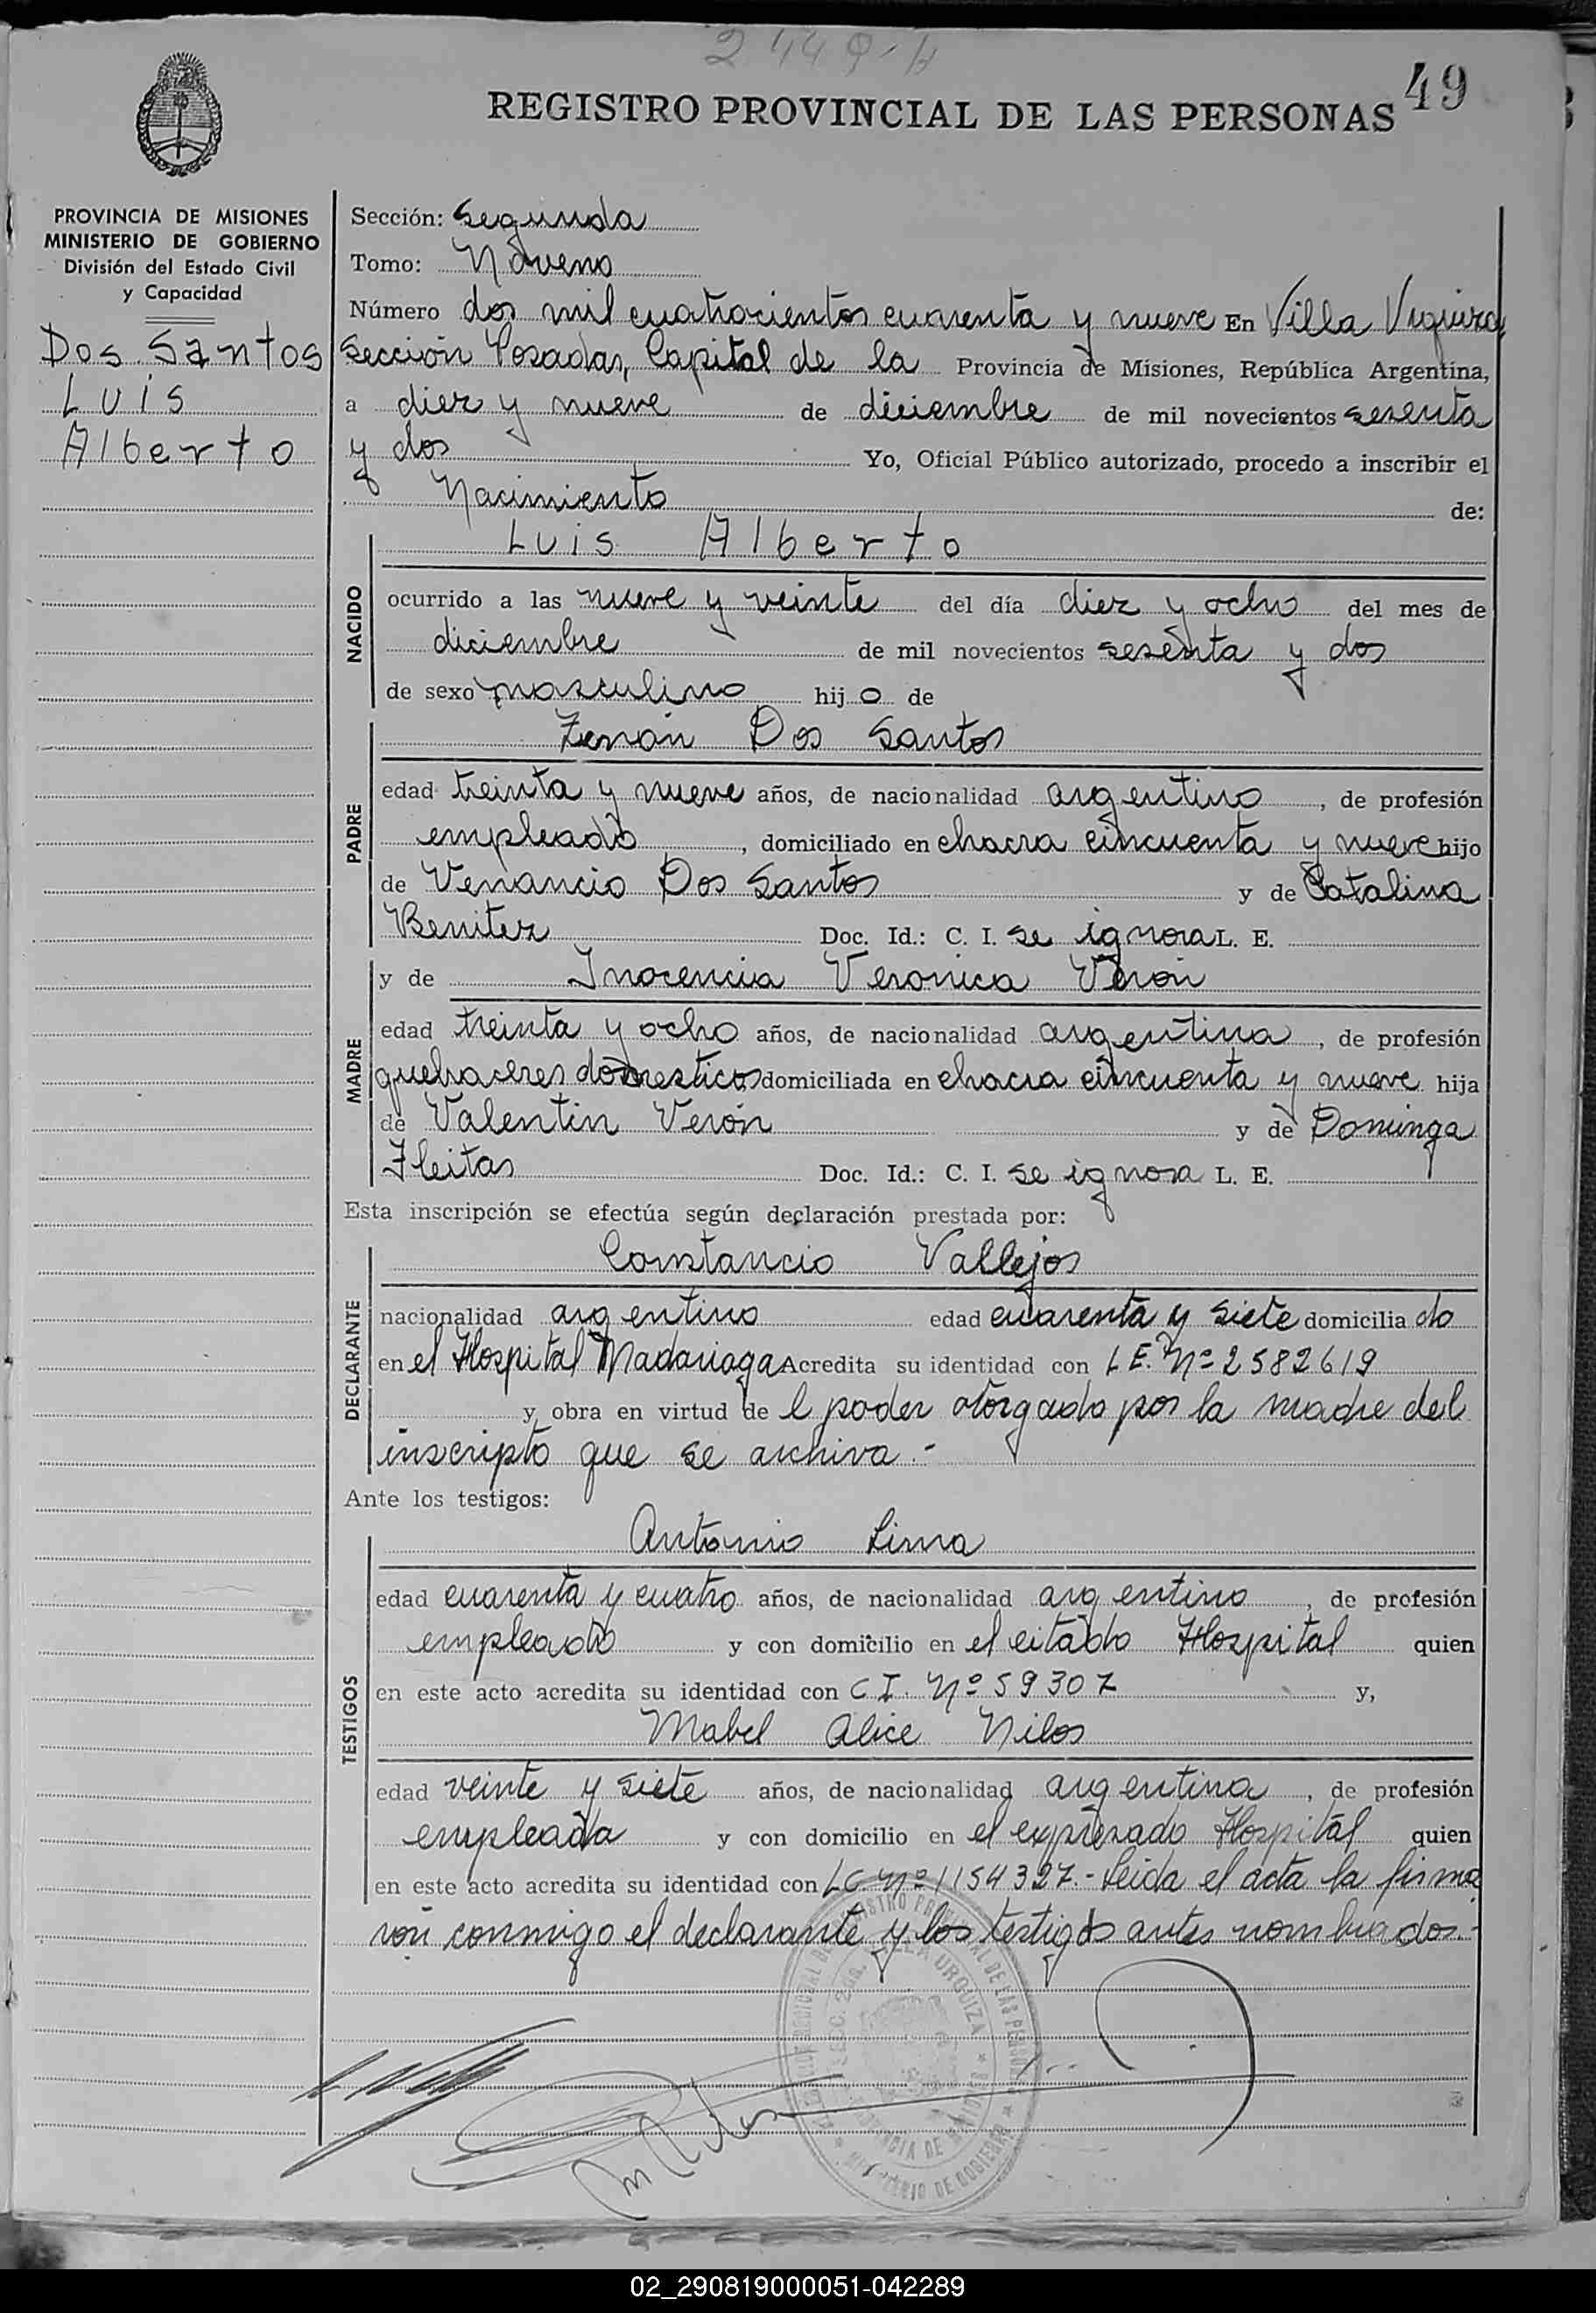 2449-A
49
REGISTRO PROVINCIAL DE LAS PERSONAS
PROVINCIA DE MISIONES
MINISTERIO DE GOBIERNO
División del Estado Civil
y Capacidad
Dos Santos
Luis
Alberto
Sección: Segunda
Tomo: Noveno
Número dos mil cuatrocientos cuarenta y nueve En Villa Urquiza,
Sección Posadas, Capital de la Provincia de Misiones, República Argentina,
a diez y nueve de diciembre de mil novecientos sesenta
y dos Yo, Oficial Público autorizado, procedo a inscribir el
Nacimiento de:
NACIDO
Luis Alberto
ocurrido a las nueve y veinte del día diez y ocho del mes de
diciembre de mil novecientos sesenta y dos
de sexo masculino hijo de
PADRE
Zenón Dos Santos
edad treinta y nueve años, de nacionalidad argentino, de profesión
empleado, domiciliado en chacra cincuenta y nueve hijo
de Venancio Dos Santos y de Catalina
Benitez Doc. Id.: C. I. se ignora L. E.
MADRE
y de Inocencia Veronica Verón
edad treinta y ocho años, de nacionalidad argentina, de profesión
quehaceres domesticos domiciliada en chacra cincuenta y nueve hija
de Valentin Verón y de Dominga
Fleitas Doc. Id.: C. I. se ignora L. E.
Esta inscripción se efectúa según declaración prestada por:
DECLARANTE
Constancio Vallejos
nacionalidad argentino edad cuarenta y siete domiciliado
en el Hospital Madariaga Acredita su identidad con L.E. Nº 2582619
y, obra en virtud de l poder otorgado por la madre del
inscripto que se archiva.-
Ante los testigos:
TESTIGOS
Antonio Lima
edad cuarenta y cuatro años, de nacionalidad argentino, de profesión
empleado y con domicilio en el citado Hospital quien
en este acto acredita su identidad con C.I. Nº 59307 y,
Mabel Alice Nilos
edad veinte y siete años, de nacionalidad argentina, de profesión
empleada y con domicilio en el expresado Hospital quien
en este acto acredita su identidad con L.C. Nº 1154327.- Leida el acta la firma
ron conmigo el declarante y los testigos antes nombrados.-
02_290819000051-042289